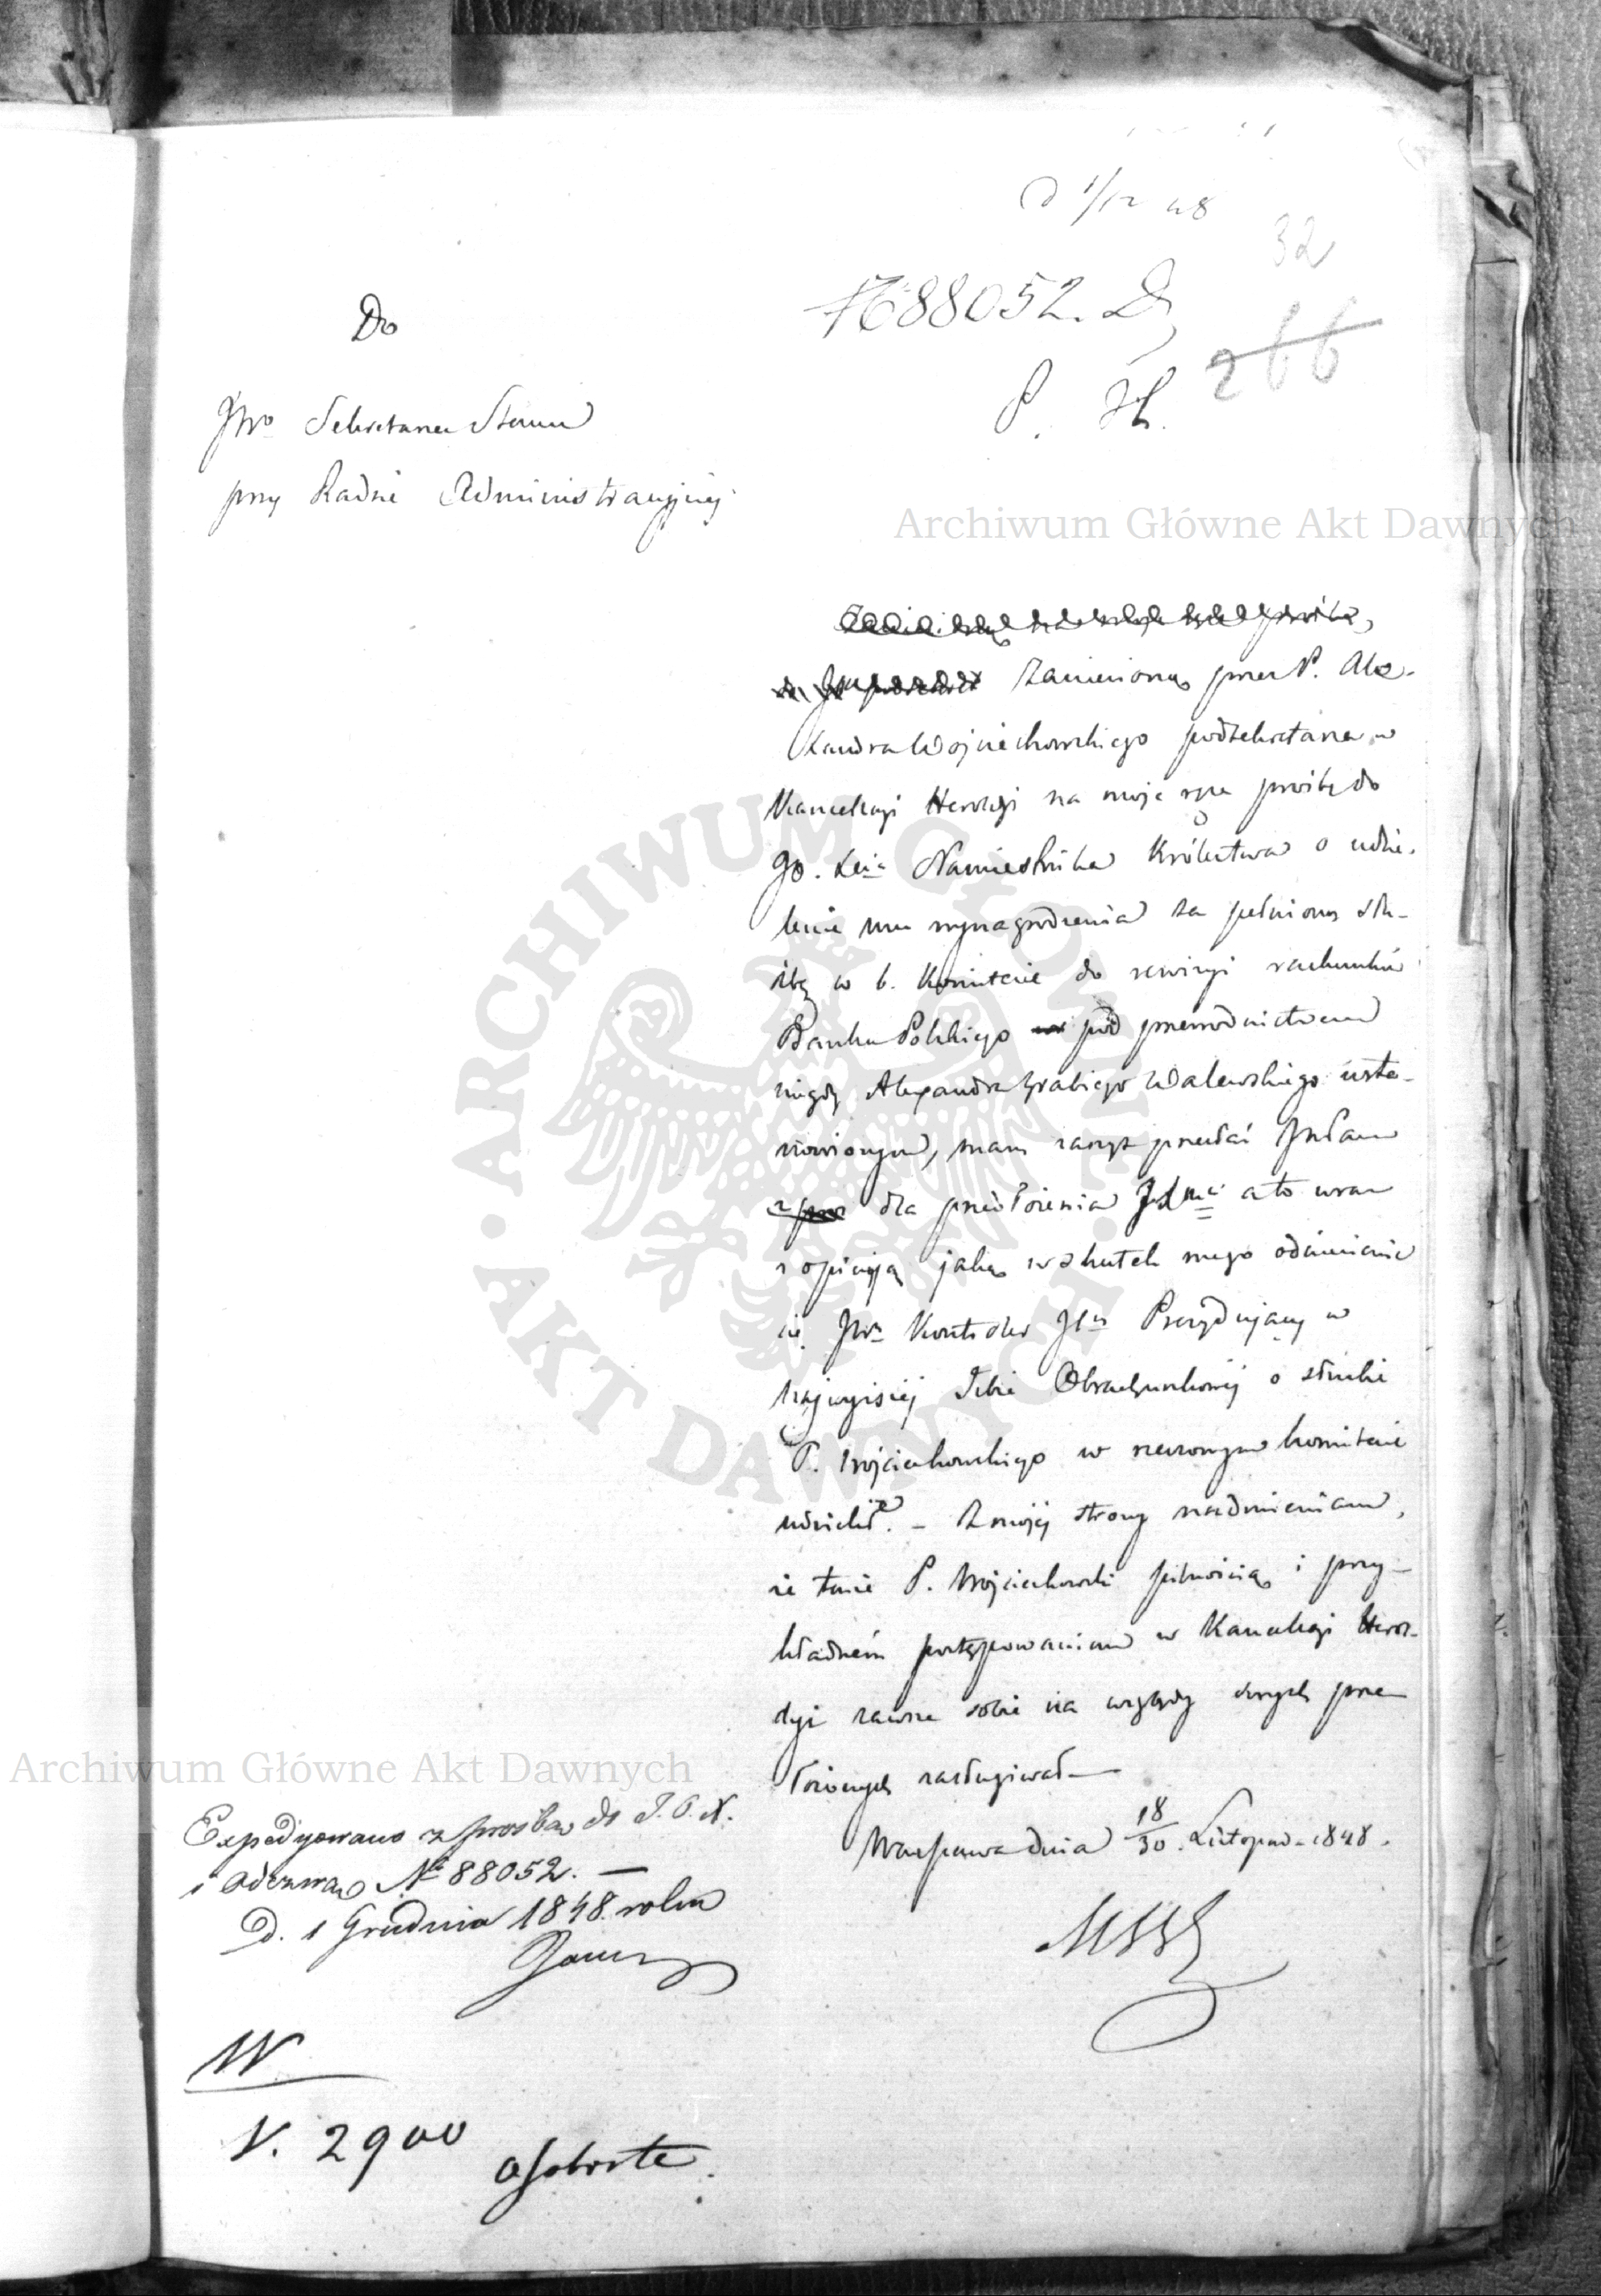 D 1/12 48
32
N 88052. D
266
P. H.
Do
JWo Sekretarza Stanu
przy Radzie Administracyjnej
Archiwum Główne Akt Dawnych
Zaniesioną przez P. Ale-
xandra Wojciechowskiego podsekretarza w
Kancellaryi Heroldyi na moje ręce prośbę do
JO. Xcia Namiestnika Królestwa o udzie-
lenie mu wynagrodzenia za pełnioną słu-
żbę w b. Komitecie do rewizyi rachunków
Banku Polskiego pod przewodnictwem
niegdy Alexandra Hrabiego Walewskiego usta-
nowionym, mam zaszczyt przesłać JWPanu
dla przedłożenia a to wraz
z opiniją jaką wskutek mego odniesienia
się JWy Kontroler Jlny Prezydujący w
Najwyższej Izbie Obrachunkowej o służbie
P. Wojciechowskiego w rzeczonym komitecie
udzielił. – Z mojej strony nadmieniam,
że tenże P. Wojciechowski pilnością i przy-
kładném postępowaniem w Kancellaryi Herol-
dyi zawsze sobie na względy swych prze-
łożonych zasługiwał –
Warszawa dnia 18/30 Listopad. 1848.
Archiwum Główne Akt Dawnych
Expedyowano z prośbą do J. O. X.
i odezwą N 88052. —
D. 1 Grudnia 1848 roku
W
N. 2900
osobiste.
ARCHIWUM GŁÓWNE · AKT DAWNYCH ·